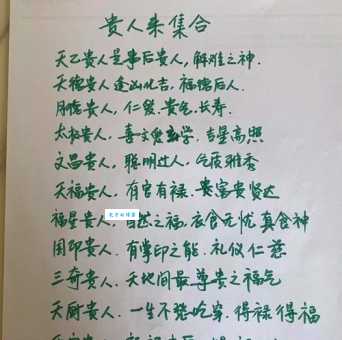 贵人来集合
天乙贵人是事后贵人,解难之神.
天德贵人逢凶化吉,福德后人.
月德贵人,仁爱.贵气.长寿.
太极贵人,喜文爱学.吉星高照
文昌贵人,聪明过人,气质雅秀
天福贵人,有官有禄.荣富贵贤达
福星贵人,自然之福,衣食无忧真食神
国印贵人.有掌印之能.礼仪仁慈
三奇贵人.天地间最尊贵之福气
天厨贵人.一生不愁吃穿.得禄得福